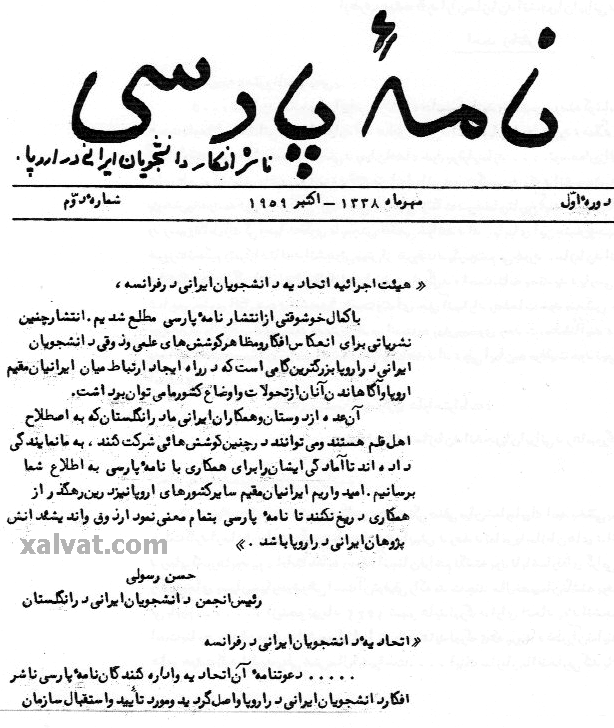 نامهٔ پارسی
ناشر افکار دانشجویان ایرانی در اروپا.
دورهٔ اوّل
مهرماه ۱۳۳۸ - اکتبر ۱۹۵۹
شماره دوّم
« هیئت اجرائیه اتحادیه دانشجویان ایرانی در فرانسه ،
با کمال خوشوقتی از انتشار نامهٔ پارسی مطلع شدیم. انتشار چنین
نشریاتی برای انعکاس افکار و مظاهر کوشش‌های علمی و ذوقی دانشجویان
ایرانی در اروپا بزرگترین گامی است که در راه ایجاد ارتباط میان ایرانیان مقیم
اروپا و آگاهاندن آنان از تحولات و اوضاع کشور می توان برداشت.
آن عده از دوستان و همکاران ایرانی ما در انگلستان که به اصطلاح
اهل قلم هستند و می توانند در چنین کوشش هائی شرکت کنند ، به ما نمایندگی
داده اند تا آمادگی ایشان را برای همکاری با نامهٔ پارسی به اطلاع شما
برسانیم . امیدواریم ایرانیان مقیم سایر کشورهای اروپا نیز در این رهگذر از
همکاری دریغ نکنند تا نامهٔ پارسی بتمام معنی نمودار ذوق و اندیشهٔ دانش
پژوهان ایرانی در اروپا باشد . »
xalvat.com
حسن رسولی
رئیس انجمن دانشجویان ایرانی در انگلستان
« اتحادیهٔ دانشجویان ایرانی در فرانسه
..... دعوتنامهٔ آن اتحادیه و اداره کنندگان نامهٔ پارسی ناشر
افکار دانشجویان ایرانی در اروپا واصل گردید و مورد تأیید و استقبال سازمان